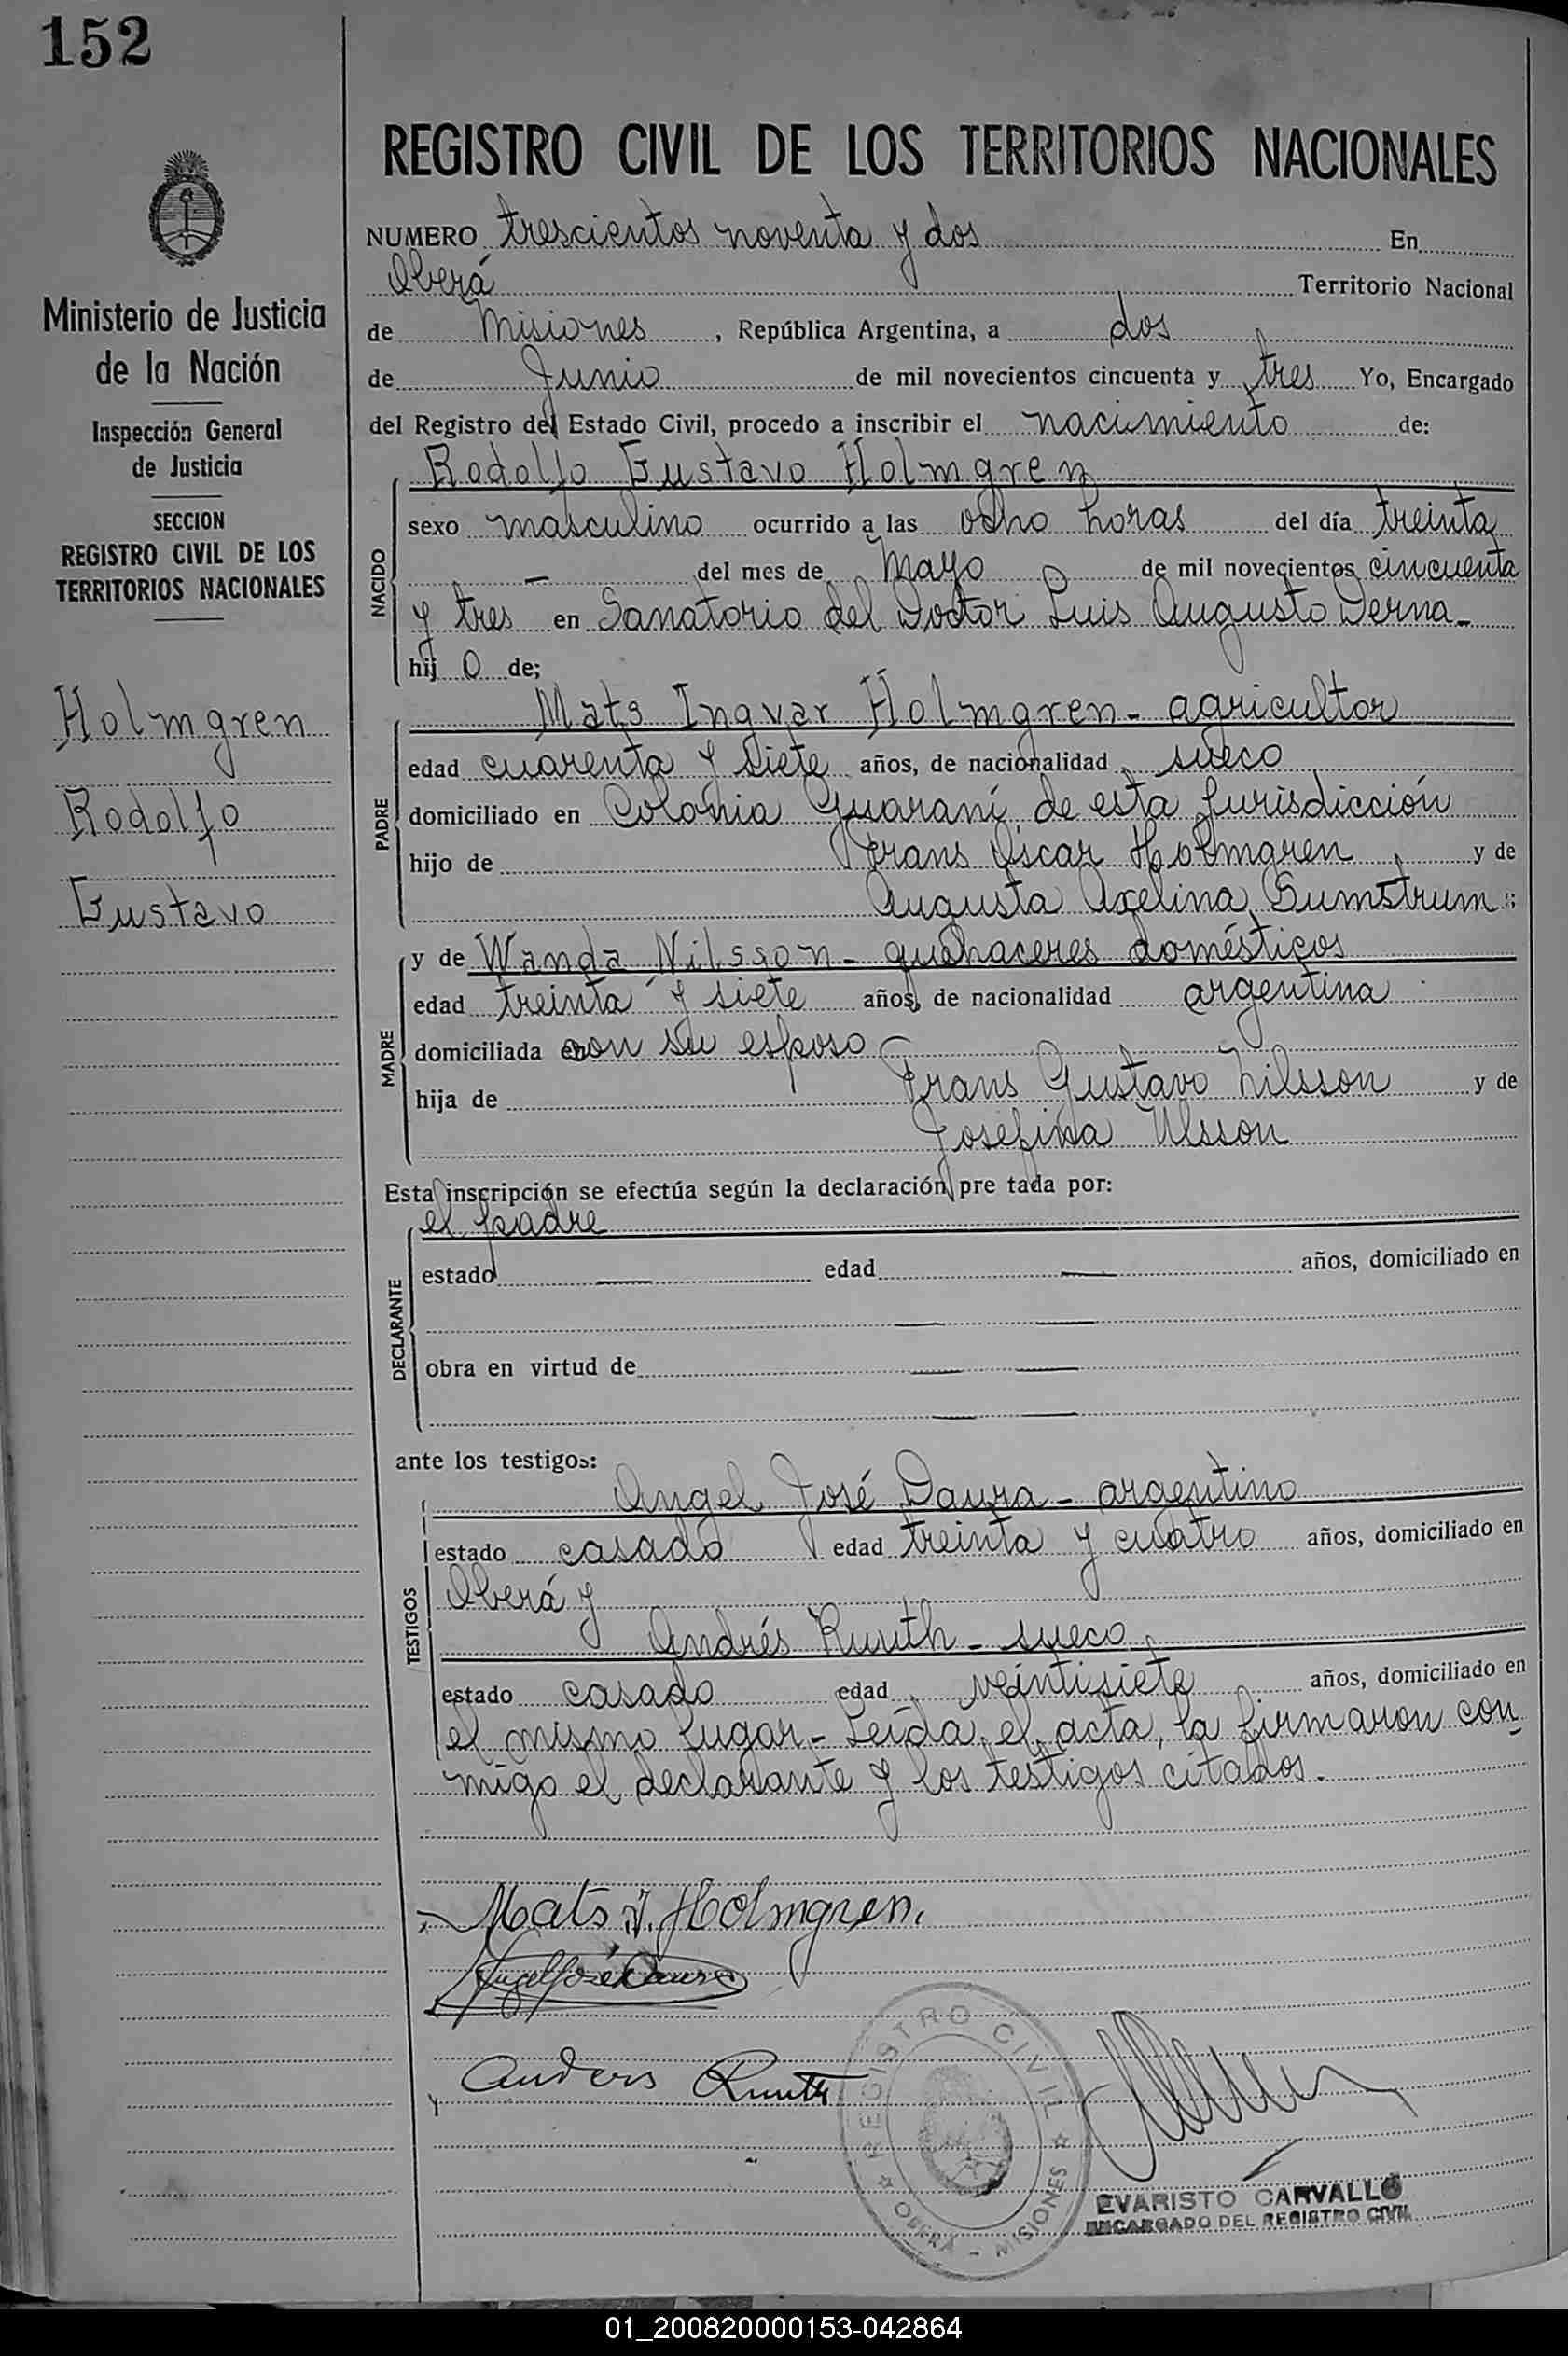 152
Ministerio de Justicia
de la Nación
Inspección General
de Justicia
SECCION
REGISTRO CIVIL DE LOS
TERRITORIOS NACIONALES
Holmgren
Rodolfo
Gustavo
REGISTRO CIVIL DE LOS TERRITORIOS NACIONALES
NUMERO trescientos noventa y dos En
Oberá Territorio Nacional
de Misiones, República Argentina, a dos
de Junio de mil novecientos cincuenta y tres Yo, Encargado
del Registro del Estado Civil, procedo a inscribir el nacimiento de:
Rodolfo Gustavo Holmgren
NACIDO
sexo masculino ocurrido a las ocho horas del día treinta
— del mes de Mayo de mil novecientos cincuenta
y tres en Sanatorio del Doctor Luis Augusto Derna-
hij o de;
Mats Ingvar Holmgren - agricultor
PADRE
edad cuarenta y siete años, de nacionalidad sueco
domiciliado en Colonia Guaraní de esta Jurisdicción
hijo de Frans Oscar Holmgren y de
Augusta Axelina Sumstrum;
y de Wanda Nilsson - quehaceres domésticos
MADRE
edad treinta y siete años, de nacionalidad argentina
domiciliada con su esposo
hija de Frans Gustavo Nilsson y de
Josefina Ulsson
Esta inscripción se efectúa según la declaración pre tada por:
el padre
DECLARANTE
estado — edad — años, domiciliado en
— —
obra en virtud de — —
— —
ante los testigos:
Angel José Daura - argentino
TESTIGOS
estado casado edad treinta y cuatro años, domiciliado en
Oberá y
Andrés Ruuth - sueco
estado casado edad veintisiete años, domiciliado en
el mismo lugar - Leída el acta, la firmaron con
migo el declarante y los testigos citados.
Mats I. Holmgren.
Angel José Daura
Anders Ruuth
REGISTRO CIVIL
OBERÁ - MISIONES
EVARISTO CARVALLO
ENCARGADO DEL REGISTRO CIVIL
01_200820000153-042864